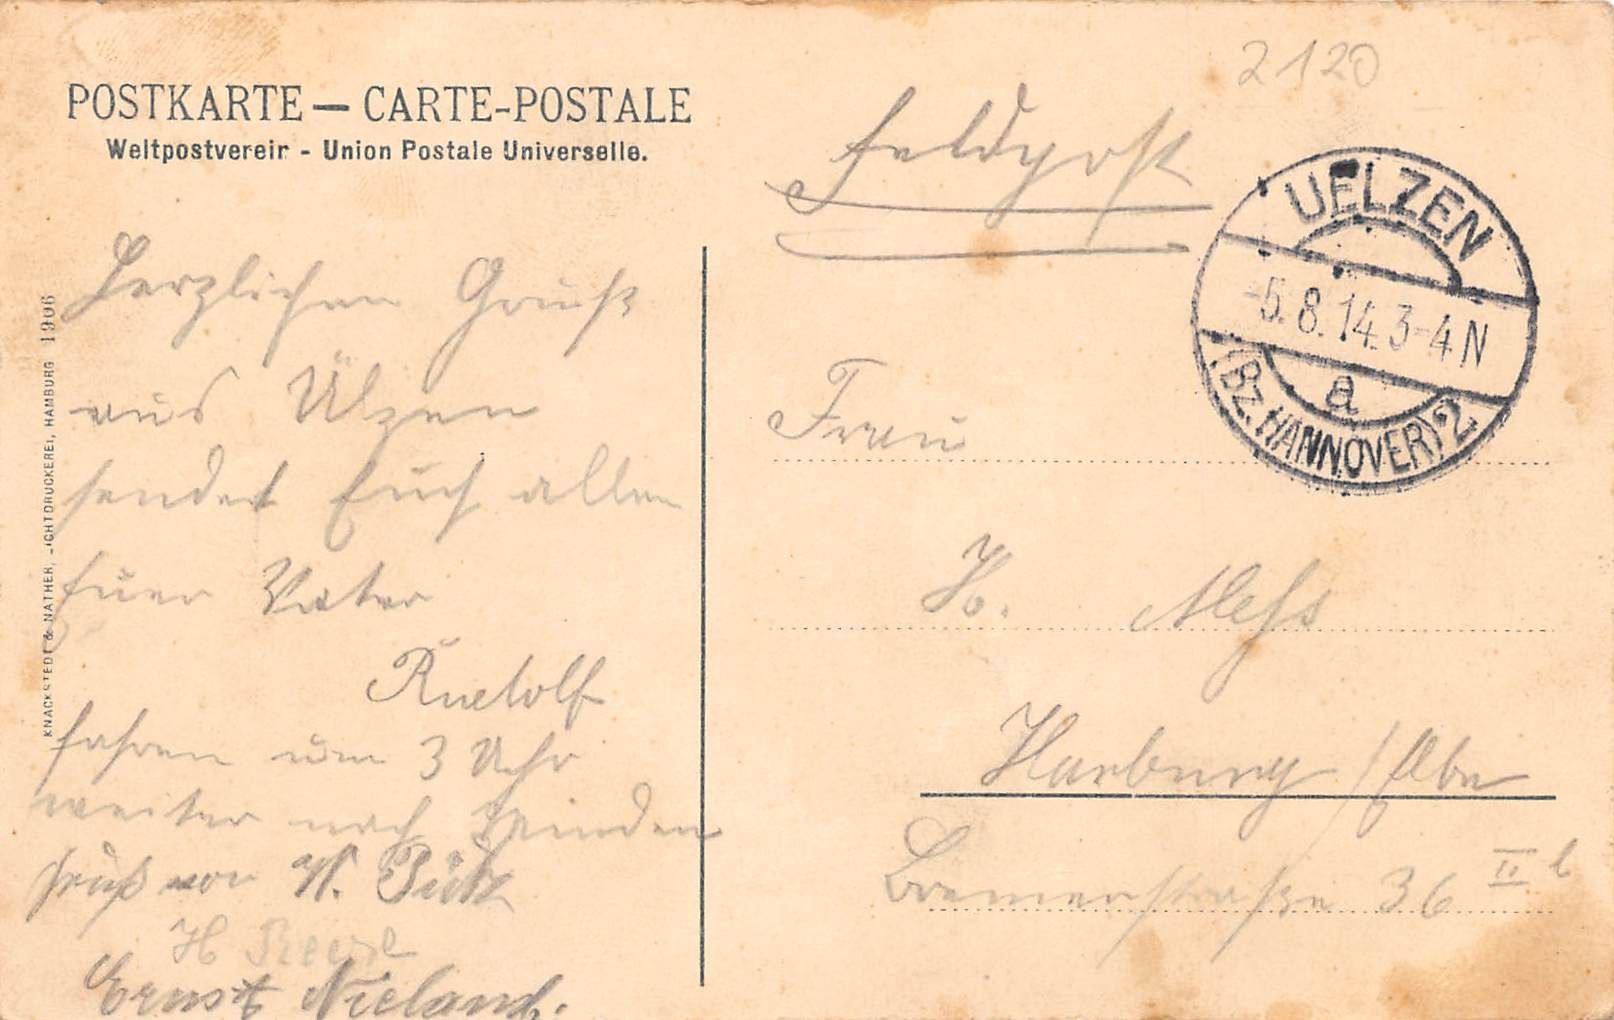 2120
POSTKARTE — CARTE-POSTALE
Weltpostverein - Union Postale Universelle.
Feldpost
UELZEN
-5.8.14.3-4N
a
(BZ. HANNOVER) 2
Herzlichen Gruß
aus Ülzen
sendet Euch allen
Euer Vater
Rudolf
fahren um 3 Uhr
weiter nach Minden
Gruß von
H
Ernst Nieland.
Frau
H. Meß
Harburg / Elbe
Bremerstraße 36 II b
KNACKSTEDT & NÄTHER, LICHTDRUCKEREI, HAMBURG 1906